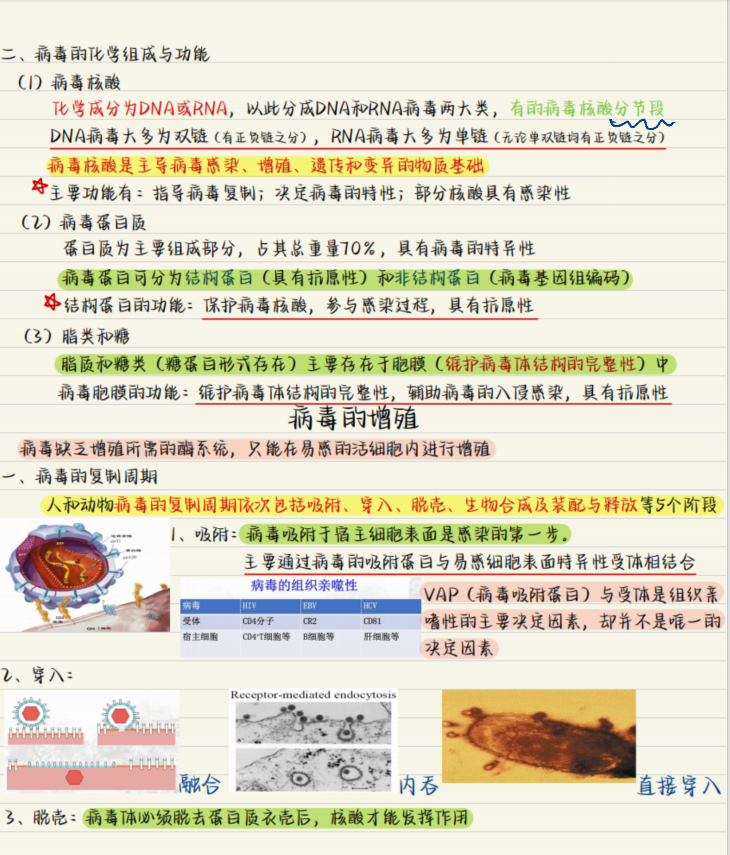 二、病毒的化学组成与功能
（1）病毒核酸
化学成分为DNA或RNA，以此分成DNA和RNA病毒两大类，有的病毒核酸分节段
DNA病毒大多为双链（有正负链之分），RNA病毒大多为单链（无论单双链均有正负链之分）
病毒核酸是主导病毒感染、增殖、遗传和变异的物质基础
主要功能有：指导病毒复制；决定病毒的特性；部分核酸具有感染性
（2）病毒蛋白质
蛋白质为主要组成部分，占其总重量70%，具有病毒的特异性
病毒蛋白可分为结构蛋白（具有抗原性）和非结构蛋白（病毒基因组编码）
结构蛋白的功能：保护病毒核酸，参与感染过程，具有抗原性
（3）脂类和糖
脂质和糖类（糖蛋白形式存在）主要存在于胞膜（维护病毒体结构的完整性）中
病毒胞膜的功能：维护病毒体结构的完整性，辅助病毒的入侵感染，具有抗原性
病毒的增殖
病毒缺乏增殖所需的酶系统，只能在易感的活细胞内进行增殖
一、病毒的复制周期
人和动物病毒的复制周期依次包括吸附、穿入、脱壳、生物合成及装配与释放等5个阶段
1、吸附：病毒吸附于宿主细胞表面是感染的第一步。
主要通过病毒的吸附蛋白与易感细胞表面特异性受体相结合
病毒的组织亲噬性
病毒 HIV EBV HCV
受体 CD4分子 CR2 CD81
宿主细胞 CD4+T细胞等 B细胞等 肝细胞等
VAP（病毒吸附蛋白）与受体是组织亲
嗜性的主要决定因素，却并不是唯一的
决定因素
2、穿入：
Receptor-mediated endocytosis
融合 内吞 直接穿入
3、脱壳：病毒体必须脱去蛋白质衣壳后，核酸才能发挥作用